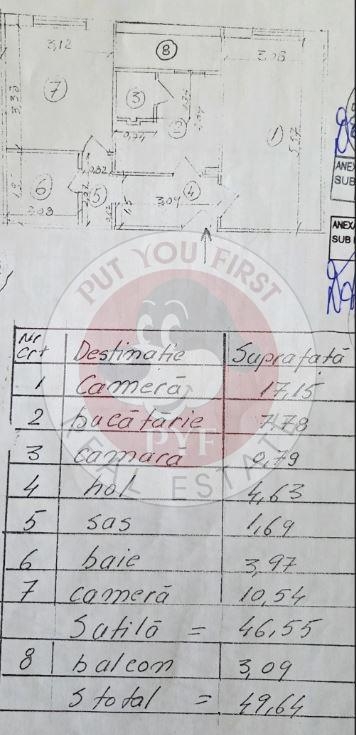 3,12
8
3,08
7
3
3,38
2
1
5,57
0,94
0,82
6
5
4
3,04
1,5
ANEXA
SUB
ANEXA
SUB
PUT YOU FIRST
PYF
REAL ESTATE
Nr Crt Destinatie Suprafată
1 Cameră 17,15
2 bucătărie 7,78
3 camară 0,79
4 hol 4,63
5 sas 1,69
6 baie 3,97
7 cameră 10,54
Sutilă = 46,55
8 balcon 3,09
Stotal = 49,64